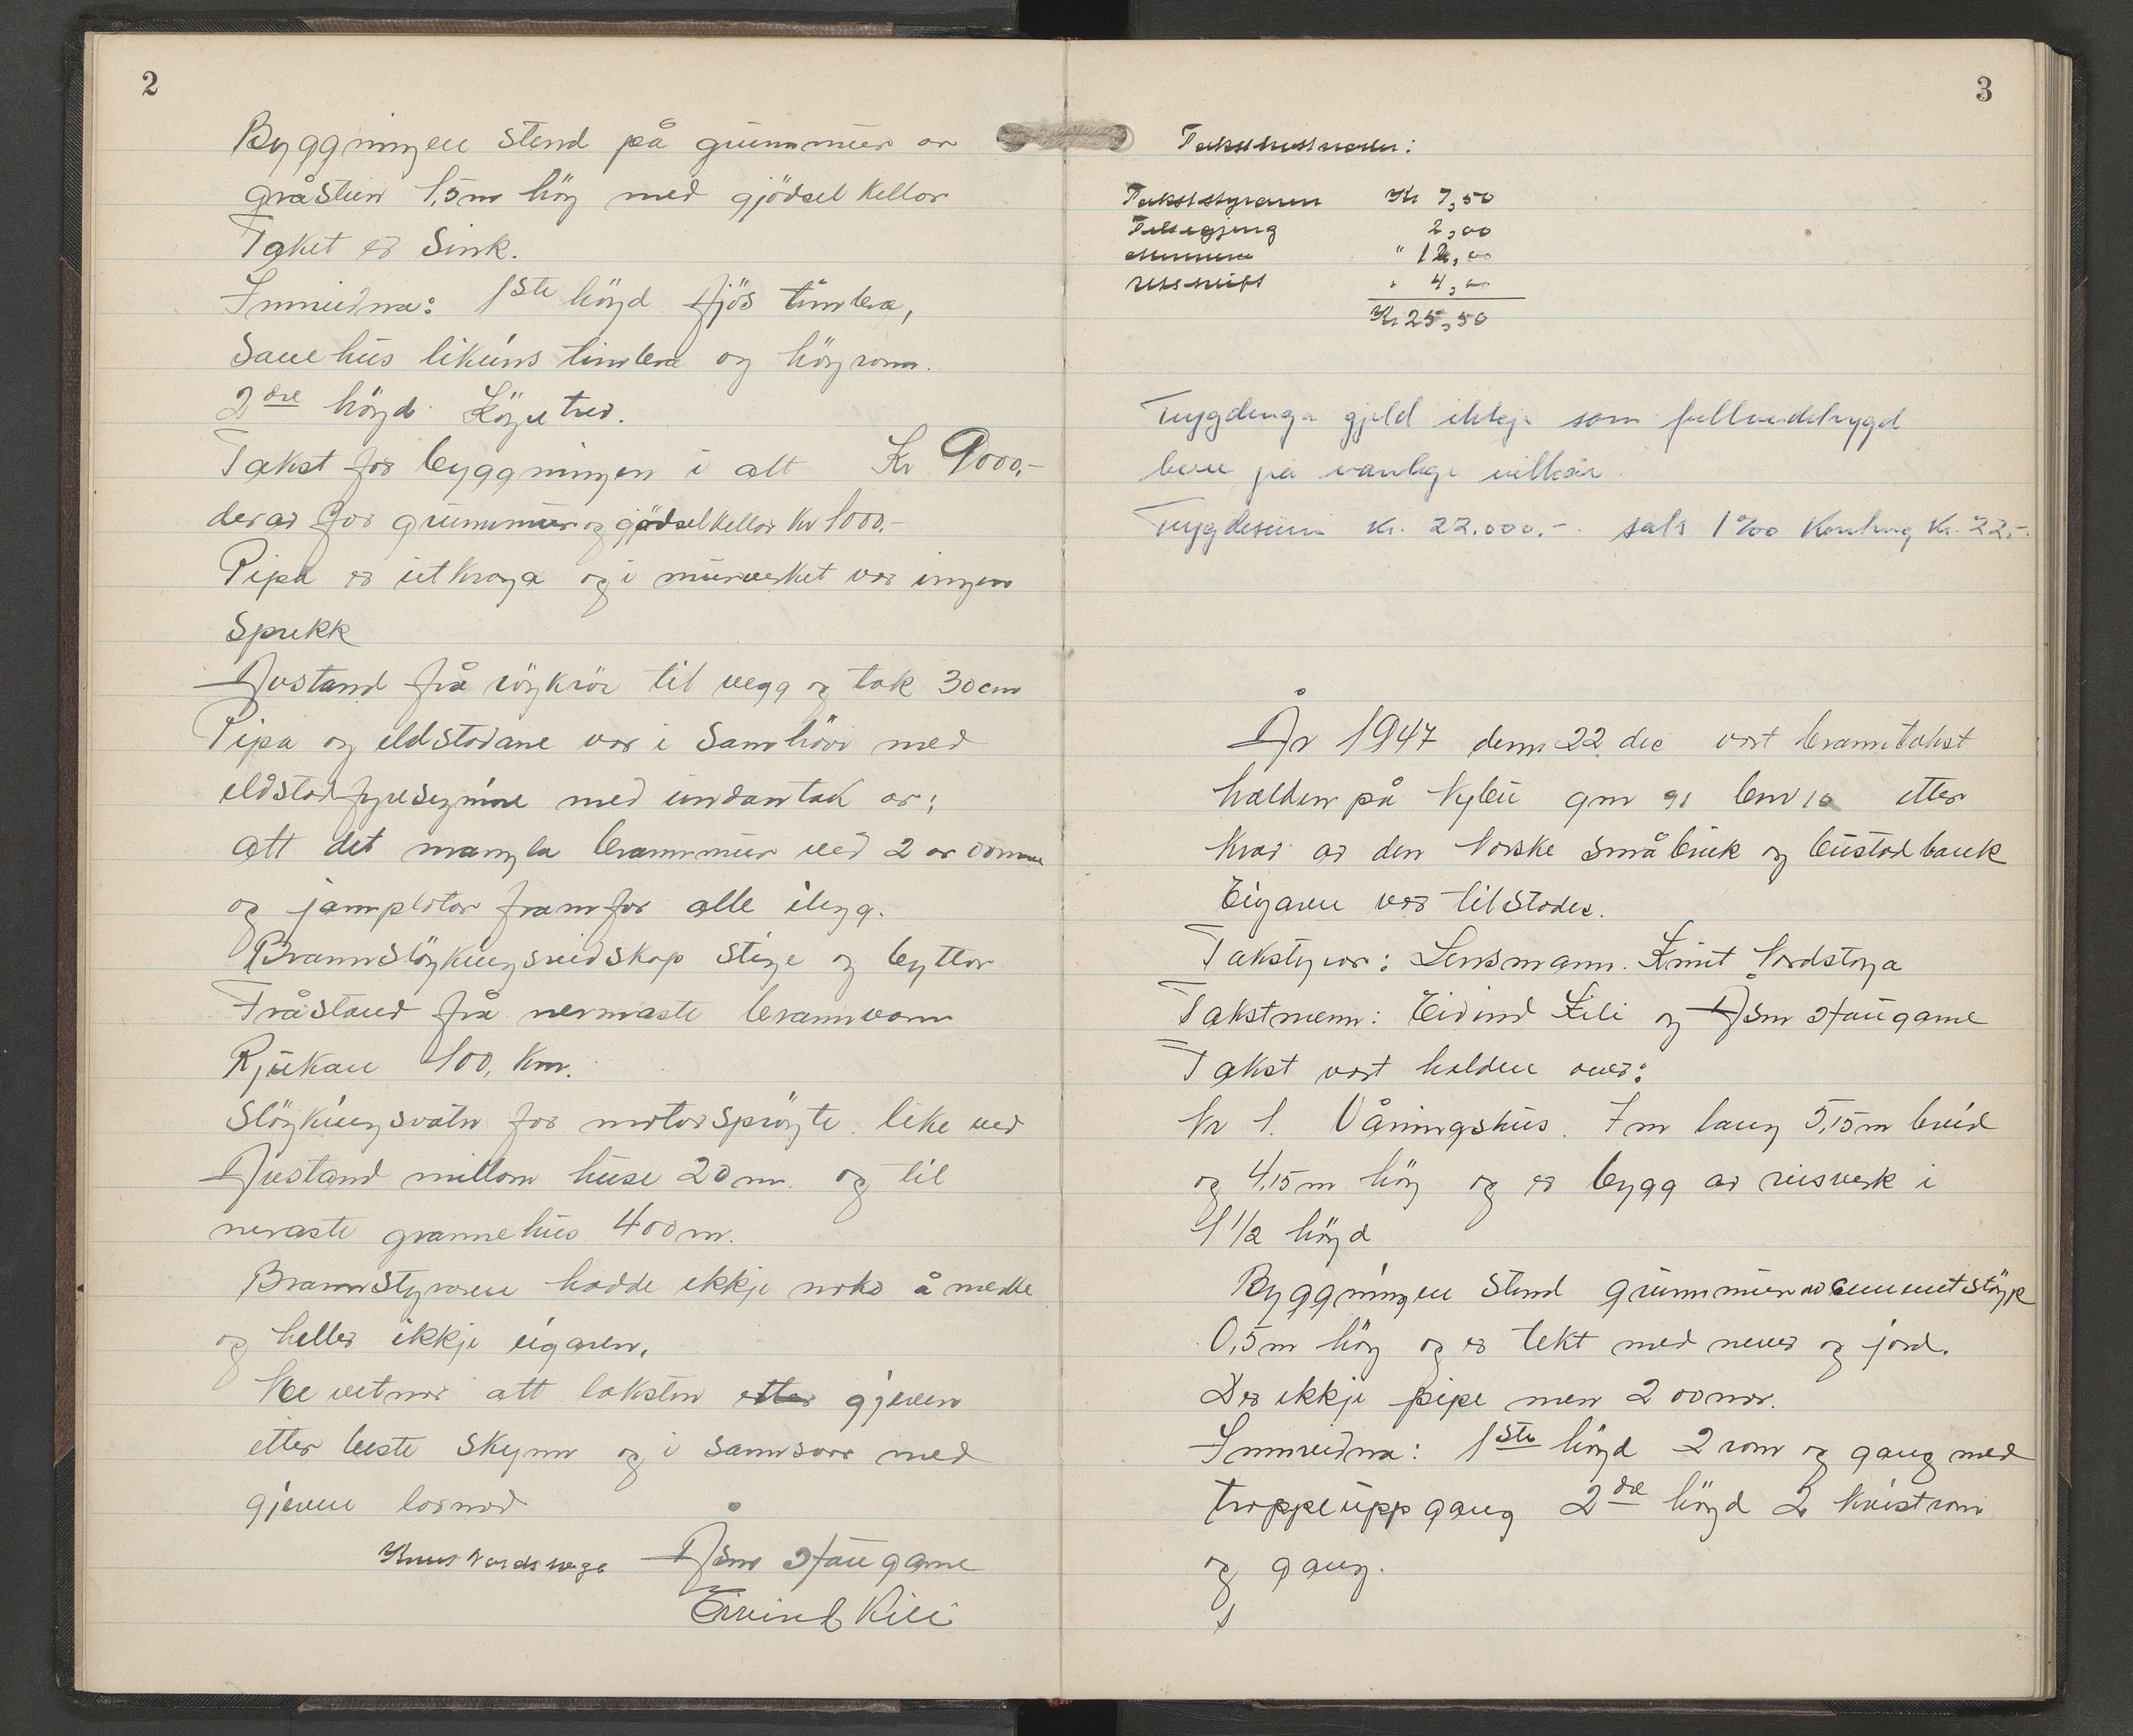 2
Byggningen stend på grunnmur av
gråstein 1,5m høg med gjødselkellar
Taket er Sink.
Innreidna: 1ste høgd fjøs timbra,
Sauehus likeins timbra og høyrom.
2dre høgd Køyetrev.
Takst for byggningen i alt Kr 9000,-
derav for grunnmur og gjødselkellar kr 1000.-
Pipa er utkraga og i murverket var ingen
Sprekk
Avstand frå røykrør til vegg og tak 30cm
Pipa og eldstadane var i Samhøve med
eldstadfyresegnine med undantak av:
att det mangla brannmur ved 2 av omnane
og jarnplator framfor alle ilegg.
Brannsløkningsreidskap stige og byttor
Fråstand frå nermaste brannvarn
Rjukan 100, km.
Sløkningsvatn for motorsprøyte like ved
Avstand millom huse 20 m. og til
neraste grannehus 400m.
Brannstyraren hadde ikkje noko å melde
og heller ikkje eigaren.
Me vitnar att taksten etter gjeven
etter beste Skynn og i Samsvar med
gjevne lovnad
Knut Nordstoga Åsm Haugane
Eivind Kili
3
Takstkostnader:
Takststyraren Kr 7,50
Tillegjeng 2,00
Mennene " 12,00
Utskrift " 4,00
Kr 25,50
Trygdinga gjeld ikkje som fullverdetrygd
berre på vanlege vilkår
Trygdesum kr. 22.000.- sats 1‰ Konting kr. 22.-
År 1947 denn 22. dec vart branntakst
halden på Nybu gnr 91 bnr 10 etter
krav av den Norske småbruk og bustadbank
Eigaren var tilstades.
Takstyrar: Lensmann. Knut Nordstoga
Takstmenn: Eivind Kili og Åsm Haugane
Takst vart halden over:
Nr 1. Våningshus. 7m lang 5,15m breid
og 4,15m høg og er bygg av reisverk i
1 1/2 høgd
Byggningen stend grunnmur av cementstøyp
0,5m høg og er tekt med never og jord.
D er ikkje pipe men 2 omnar.
Innreidna: 1ste høgd 2 rom og gang med
troppeuppgang 2dre høgd 2 kvistrom
og gang.